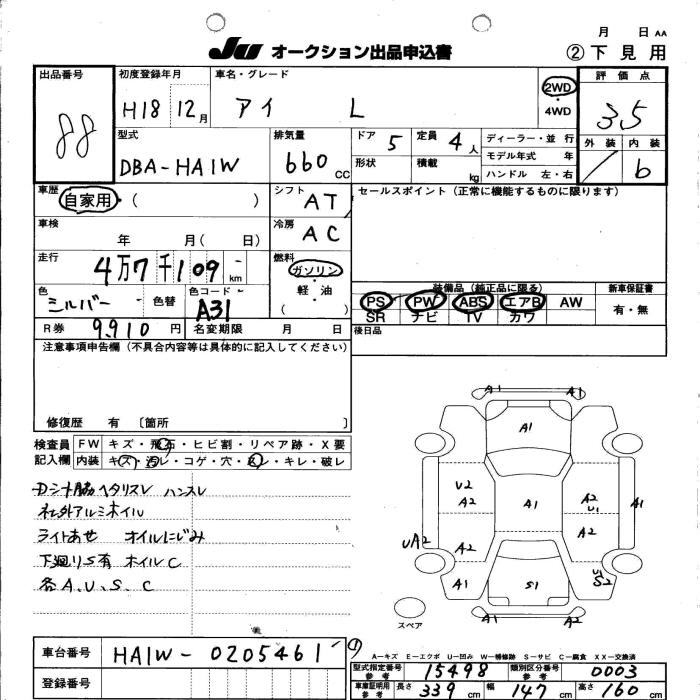 月 日 AA
JU オークション出品申込書 ②下見用
出品番号 初度登録年月 車名・グレード 評価点
88 H18 12月 アイ L 2WD・4WD 3.5
型式 排気量 ドア 5 定員 4人 ディーラー・並行 外装 内装
DBA-HA1W 660cc 形状 積載 kg モデル年式 年 b
ハンドル 左・右
車歴 自家用 ( ) シフト AT セールスポイント(正常に機能するものに限ります)
車検 年 月( 日) 冷房 AC
走行 4万7千109km 燃料 ガソリン・軽油 ( )
色 シルバー 色替 色コード A31 装備品(純正品に限る) 新車保証書
PS PW ABS エアB AW 有・無
SR ナビ TV カワ
R券 9,910円 名変期限 月 日 後日品
注意事項申告欄(不具合内容等は具体的に記入してください)
修復歴 有 〔箇所 〕
検査員 FW キズ・飛石・ヒビ割・リペア跡・X要
記入欄 内装 キズ・汚レ・コゲ・穴・スレ・キレ・破レ
Dシート脇ヘタリスレ ハンスレ
社外アルミホイル
ライトあせ オイルにじみ
下廻りS有 ホイルC
各A.U.S.C
A1 A1
A1
U2 A2 A1 A2 U1 A1
UA2 A2 A2
A1 S1 S2
A1 A2
スペア
A-キズ E-エクボ U-凹み W-補修跡 S-サビ C-腐食 XX-交換済
車台番号 HA1W-0205461 型式指定番号 参考 15498 類別区分番号 参考 0003
登録番号 車庫証明用 参考 長さ 339cm 幅 147cm 高さ 160cm